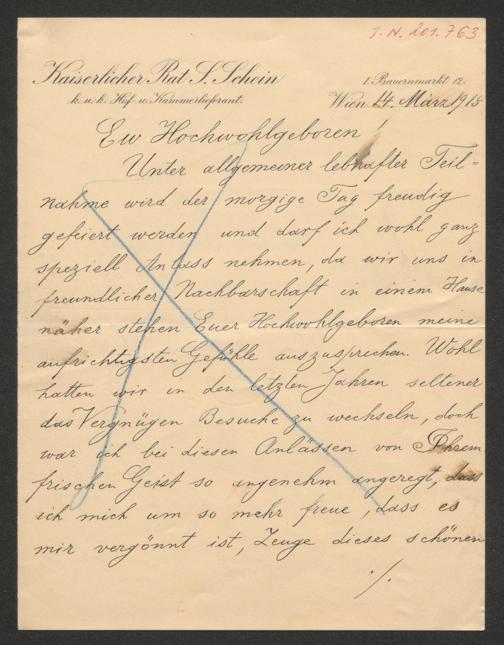 I. N. 201.763
Kaiserlicher Rat S. Schein
k. u. k. Hof- u. Kammerlieferant.
I. Bauernmarkt 12.
Wien, 14. März 1915
Euer Hochwohlgeboren!
Unter allgemeiner lebhafter Teil=
nahme wird der morgige Tag freudig
gefeiert werden und darf ich wohl ganz
speziell Anlass nehmen, da wir uns in
freundlicher Nachbarschaft in einem Hause
näher stehen Euer Hochwohlgeboren meine
aufrichtigsten Gefühle auszusprechen. Wohl
hatten wir in den letzten Jahren seltener
das Vergnügen Besuche zu wechseln, doch
war ich bei diesen Anlässen von Ihrem
frischen Geist so angenehm angeregt, dass
ich mich um so mehr freue, dass es
mir vergönnt ist, Zeuge dieses schönen
./.